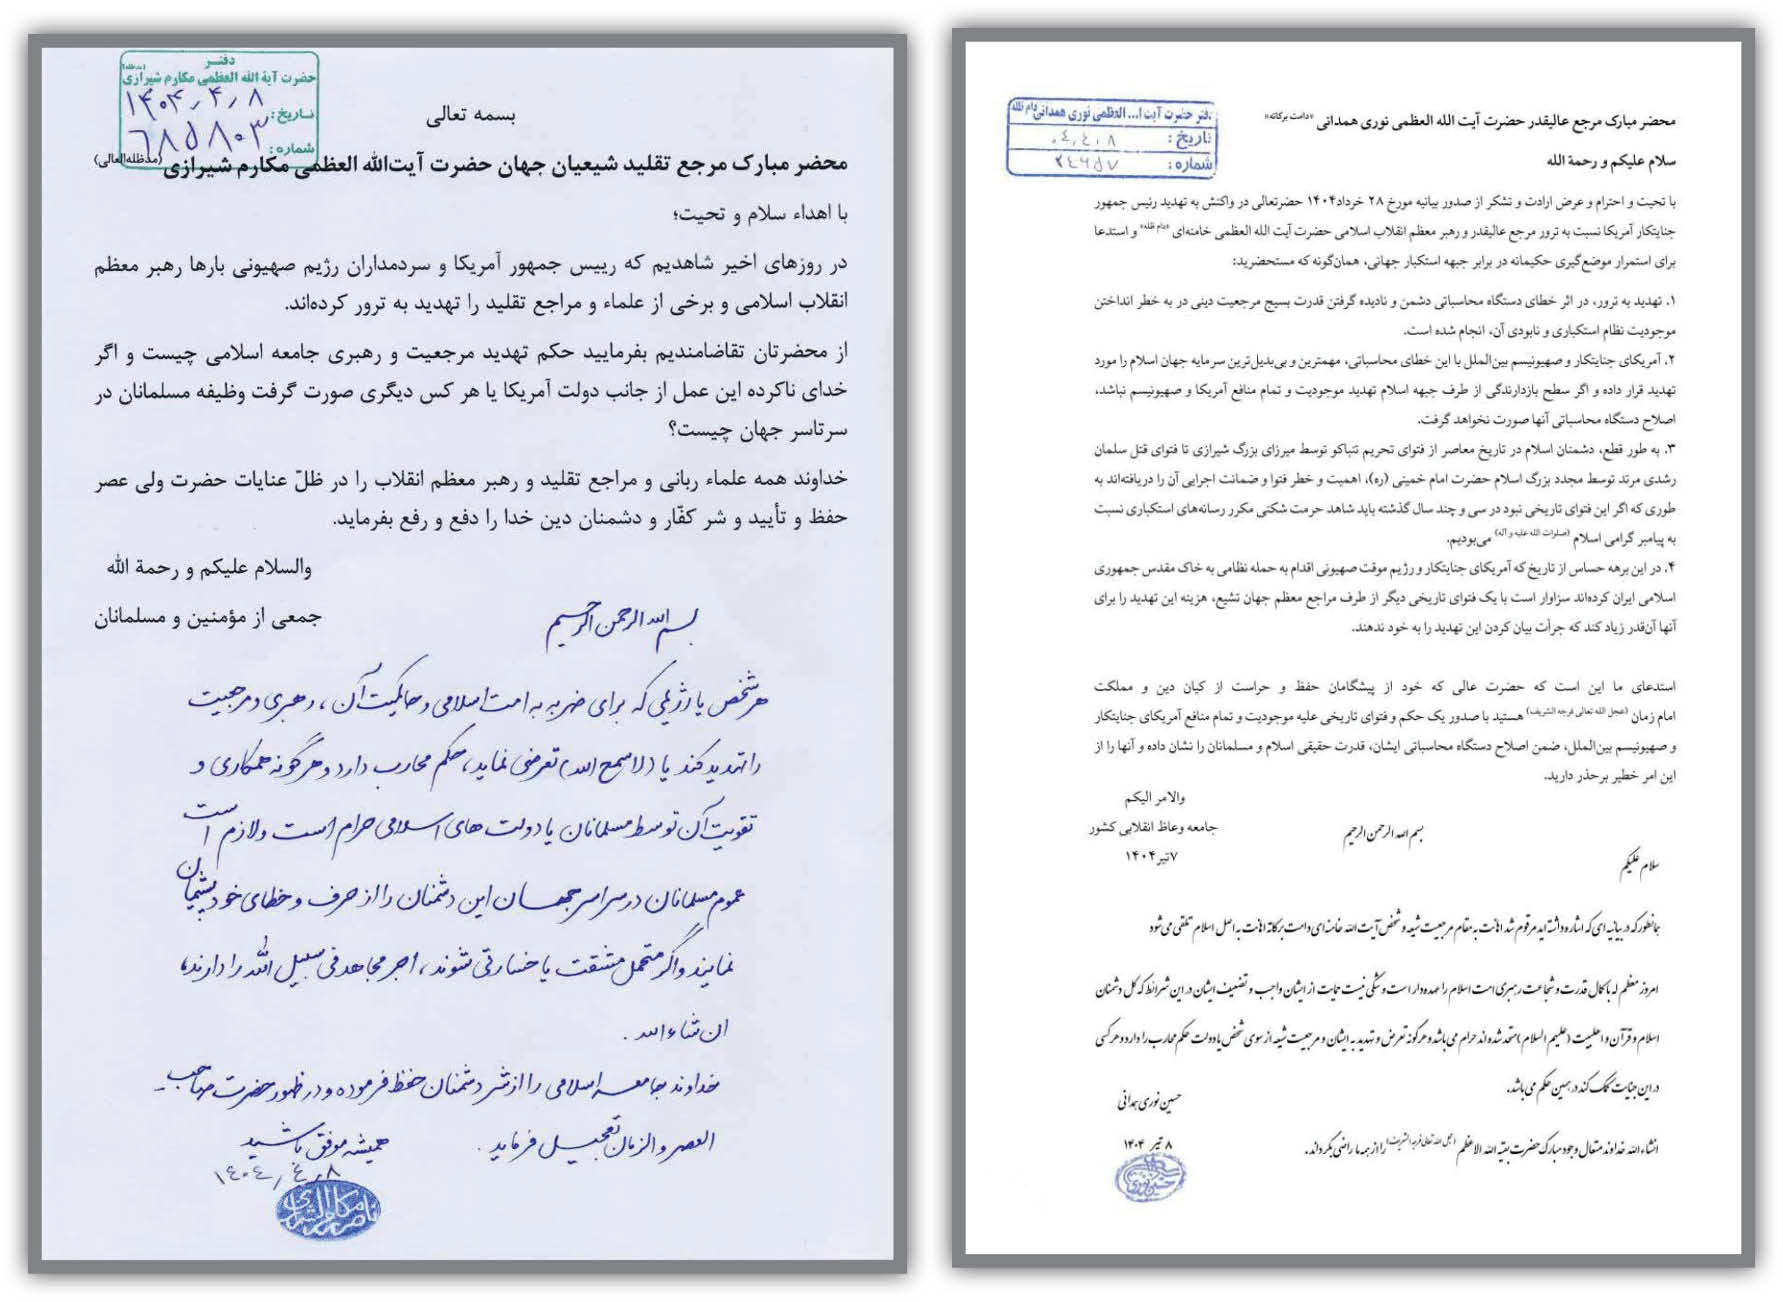 دفتر
حضرت آیة الله العظمی مکارم شیرازی (مدظله)
تاریخ: ۱۴۰۴٫۴٫۸
شماره: ۶۸۵۸۰۳
بسمه تعالی
محضر مبارک مرجع تقلید شیعیان جهان حضرت آیت‌الله العظمی مکارم شیرازی (مدظله‌العالی)
با اهداء سلام و تحیت؛
در روزهای اخیر شاهدیم که رییس جمهور آمریکا و سردمداران رژیم صهیونی بارها رهبر معظم
انقلاب اسلامی و برخی از علماء و مراجع تقلید را تهدید به ترور کرده‌اند.
از محضرتان تقاضامندیم بفرمایید حکم تهدید مرجعیت و رهبری جامعه اسلامی چیست و اگر
خدای ناکرده این عمل از جانب دولت آمریکا یا هر کس دیگری صورت گرفت وظیفه مسلمانان در
سرتاسر جهان چیست؟
خداوند همه علماء ربانی و مراجع تقلید و رهبر معظم انقلاب را در ظلّ عنایات حضرت ولی عصر
حفظ و تأیید و شر کفّار و دشمنان دین خدا را دفع و رفع بفرماید.
والسلام علیکم و رحمة الله
جمعی از مؤمنین و مسلمانان
بسم الله الرحمن الرحیم
هر شخص یا رژیمی که برای ضربه به امت اسلامی و حاکمیت آن، رهبری و مرجعیت
را تهدید کند یا (لا سمح الله) تعرضی نماید، حکم محارب دارد و هرگونه همکاری و
تقویت آن توسط مسلمانان یا دولت های اسلامی حرام است و لازم است
عموم مسلمانان در سراسر جهان این دشمنان را از حرف و خطای خود پشیمان
نمایند و اگر متحمل مشقت یا خسارتی شوند، اجر مجاهد فی سبیل الله را دارند،
ان شاء الله.
خداوند جامعه اسلامی را از شر دشمنان حفظ فرموده و در ظهور حضرت صاحب
العصر و الزمان تعجیل فرماید.
همیشه موفق باشید
۱۴۰۴٫۴٫۸
ناصر مکارم الشیرازی
دفتر حضرت آیت ا... العظمی نوری همدانی دام ظله
تاریخ: ۰۴٫۴٫۸
شماره: ۲۴۶۵۷
محضر مبارک مرجع عالیقدر حضرت آیت الله العظمی نوری همدانی «دامت برکاته»
سلام علیکم و رحمة الله
با تحیت و احترام و عرض ارادت و تشکر از صدور بیانیه مورخ ۲۸ خرداد۱۴۰۴ حضرتعالی در واکنش به تهدید رئیس جمهور
جنایتکار آمریکا نسبت به ترور مرجع عالیقدر و رهبر معظم انقلاب اسلامی حضرت آیت الله العظمی خامنه‌ای «دام ظله» و استدعا
برای استمرار موضع‌گیری حکیمانه در برابر جبهه استکبار جهانی، همان‌گونه که مستحضرید:
۱. تهدید به ترور، در اثر خطای دستگاه محاسباتی دشمن و نادیده گرفتن قدرت بسیج مرجعیت دینی در به خطر انداختن
موجودیت نظام استکباری و نابودی آن، انجام شده است.
۲. آمریکای جنایتکار و صهیونیسم بین‌الملل با این خطای محاسباتی، مهمترین و بی‌بدیل‌ترین سرمایه جهان اسلام را مورد
تهدید قرار داده و اگر سطح بازدارندگی از طرف جبهه اسلام تهدید موجودیت و تمام منافع آمریکا و صهیونیسم نباشد،
اصلاح دستگاه محاسباتی آنها صورت نخواهد گرفت.
۳. به طور قطع، دشمنان اسلام در تاریخ معاصر از فتوای تحریم تنباکو توسط میرزای بزرگ شیرازی تا فتوای قتل سلمان
رشدی مرتد توسط مجدد بزرگ اسلام حضرت امام خمینی (ره)، اهمیت و خطر فتوا و ضمانت اجرایی آن را دریافته‌اند به
طوری که اگر این فتوای تاریخی نبود در سی و چند سال گذشته باید شاهد حرمت شکنی مکرر رسانه‌های استکباری نسبت
به پیامبر گرامی اسلام (صلوات الله علیه و آله) می‌بودیم.
۴. در این برهه حساس از تاریخ که آمریکای جنایتکار و رژیم موقت صهیونی اقدام به حمله نظامی به خاک مقدس جمهوری
اسلامی ایران کرده‌اند سزاوار است با یک فتوای تاریخی دیگر از طرف مراجع معظم جهان تشیع، هزینه این تهدید را برای
آنها آن‌قدر زیاد کند که جرأت بیان کردن این تهدید را به خود ندهند.
استدعای ما این است که حضرت عالی که خود از پیشگامان حفظ و حراست از کیان دین و مملکت
امام زمان (عجل الله تعالی فرجه الشریف) هستید با صدور یک حکم و فتوای تاریخی علیه موجودیت و تمام منافع آمریکای جنایتکار
و صهیونیسم بین‌الملل، ضمن اصلاح دستگاه محاسباتی ایشان، قدرت حقیقی اسلام و مسلمانان را نشان داده و آنها را از
این امر خطیر برحذر دارید.
والامر الیکم
جامعه وعاظ انقلابی کشور
۷تیر۱۴۰۴
بسم الله الرحمن الرحیم
سلام علیکم
همانطور که در بیانیه ای که اشاره داشته اید مرقوم شد اهانت به مقام مرجعیت شیعه و شخص آیت الله خامنه ای دامت برکاته اهانت به اصل اسلام تلقی می شود
امروز معظم له با کمال قدرت و شجاعت رهبری امت اسلام را عهده دار است و شکی نیست حمایت از ایشان واجب و تضعیف ایشان در این شرائط که کل دشمنان
اسلام و قرآن و اهلبیت (علیهم السلام) متحد شده اند حرام می باشد و هرگونه تعرض و تهدید به ایشان و مرجعیت شیعه از سوی شخص یا دولت حکم محارب را دارد و هر کسی
در این جنایت کمک کند در همین حکم می باشد.
انشاء الله خداوند متعال وجود مبارک حضرت بقیة الله الاعظم (عجل الله تعالی فرجه الشریف) را از همه ما راضی بگرداند.
حسین نوری همدانی
۸ تیر ۱۴۰۴